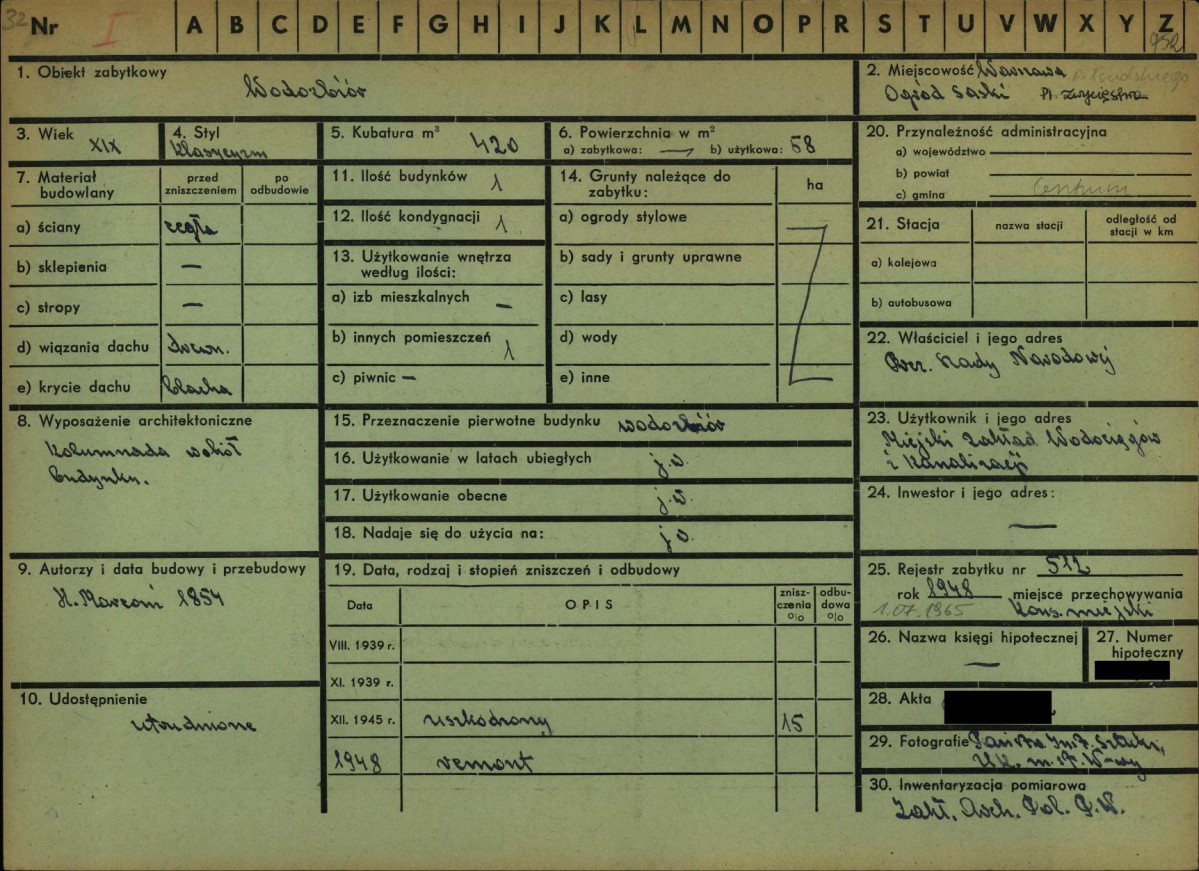 32 Nr I A B C D E F G H I J K L M N O P R S T U V W X Y Z
952
1. Obiekt zabytkowy
Wodozbiór
2. Miejscowość Warszawa Piłsudskiego
Ogród Saski Pl. Zwycięstwa
3. Wiek
XIX
4. Styl
klasycyzm
5. Kubatura m³
420
6. Powierzchnia w m²
a) zabytkowa: — b) użytkowa: 58
7. Materiał budowlany
przed zniszczeniem
po odbudowie
a) ściany cegła
b) sklepienia —
c) stropy —
d) wiązania dachu drewn.
e) krycie dachu blacha
8. Wyposażenie architektoniczne
Kolumnada wokół
budynku.
9. Autorzy i data budowy i przebudowy
H. Marconi 1854
10. Udostępnienie
utrudnione
11. Ilość budynków 1
12. Ilość kondygnacji 1
13. Użytkowanie wnętrza
według ilości:
a) izb mieszkalnych —
b) innych pomieszczeń 1
c) piwnic —
14. Grunty należące do
zabytku:
ha
a) ogrody stylowe
b) sady i grunty uprawne
c) lasy
d) wody
e) inne
15. Przeznaczenie pierwotne budynku wodozbiór
16. Użytkowanie w latach ubiegłych j.w.
17. Użytkowanie obecne j.w.
18. Nadaje się do użycia na: j.w.
19. Data, rodzaj i stopień zniszczeń i odbudowy
Data
OPIS
znisz-
czenia
%
odbu-
dowa
%
VIII. 1939 r.
XI. 1939 r.
XII. 1945 r. uszkodzony 15
1948 remont
20. Przynależność administracyjna
a) województwo
b) powiat
c) gmina Centrum
21. Stacja
nazwa stacji
odległość od
stacji w km
a) kolejowa
b) autobusowa
22. Właściciel i jego adres
Prez. Rady Narodowej
23. Użytkownik i jego adres
Miejski Zakład Wodociągów
i Kanalizacji
24. Inwestor i jego adres:
—
25. Rejestr zabytku nr 512
rok 1948 miejsce przechowywania
1.07.1965 Kons. miejski
26. Nazwa księgi hipotecznej
—
27. Numer
hipoteczny
28. Akta
29. Fotografie Państw. Inst. Sztuki,
U.K. m. st. W-wy
30. Inwentaryzacja pomiarowa
Zakł. Arch. Pol. P.W.